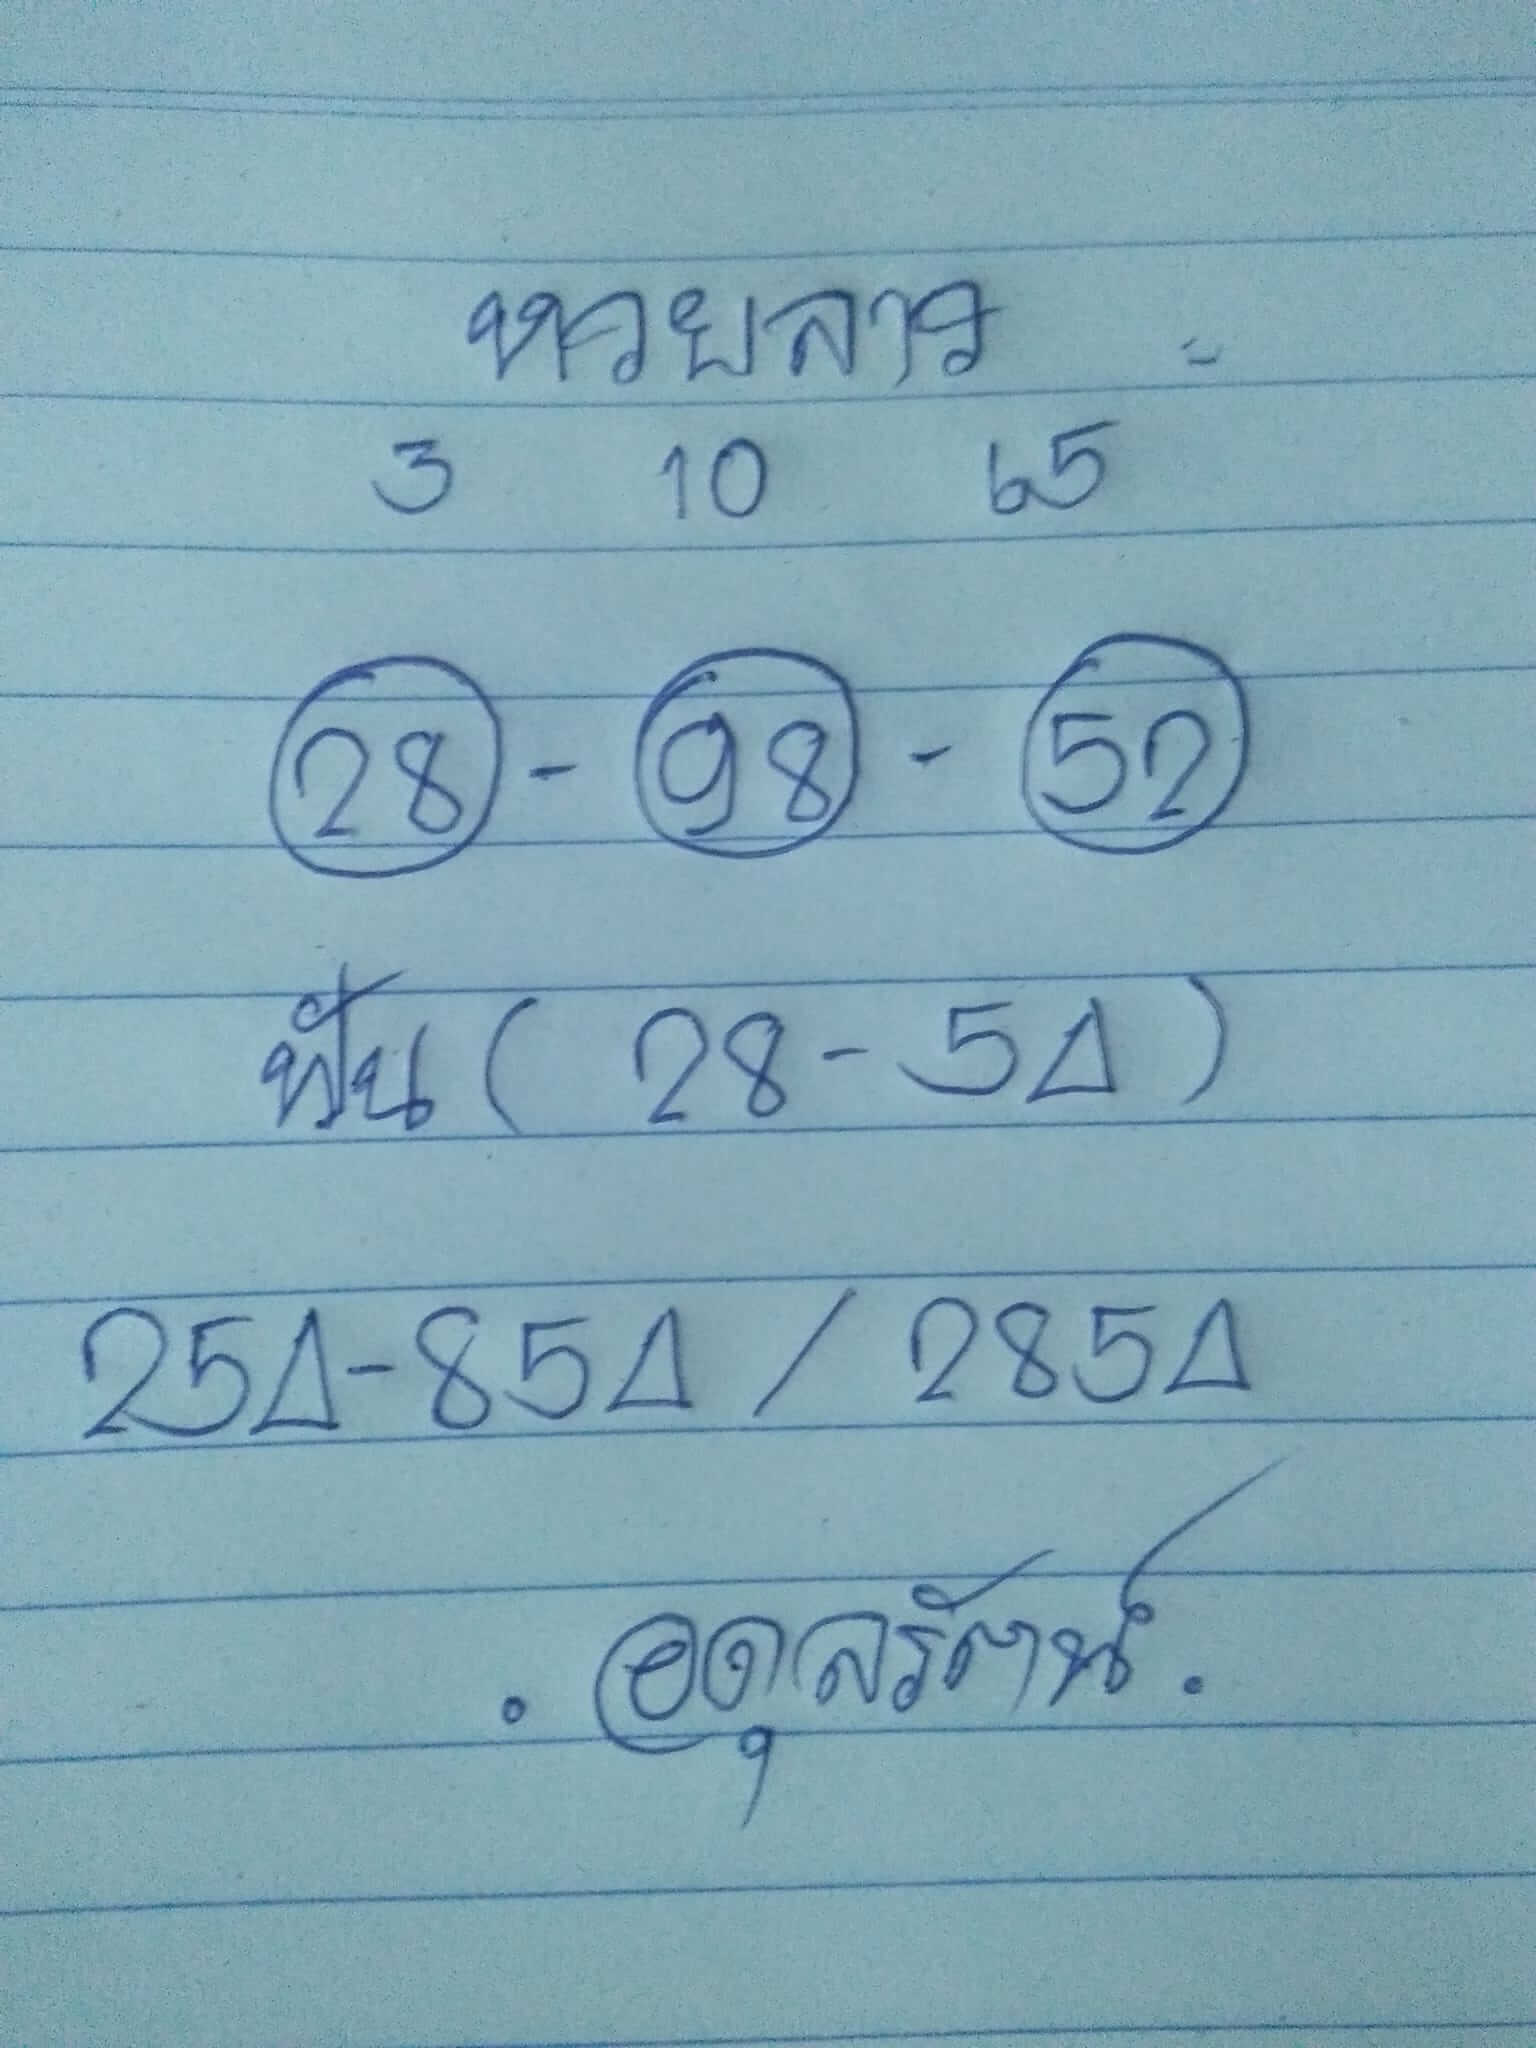 หวยลาว
3 10 65
28 - 98 - 52
ฟัน ( 28 - 5Δ )
25Δ - 85Δ / 285Δ
. อดุลรัตน์ .